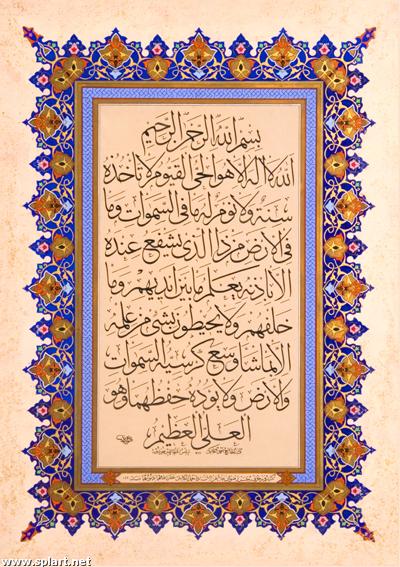 بسم الله الرحمن الرحيم
الله لا اله الا هو الحي القيوم لا تأخذه
سنة ولا نوم له ما في السموات وما
في الارض من ذا الذي يشفع عنده
الا باذنه يعلم ما بين ايديهم وما
خلفهم ولا يحيطون بشيء من علمه
الا بما شاء وسع كرسيه السموات
والارض ولا يوده حفظهما وهو
العلي العظيم
www.splart.net